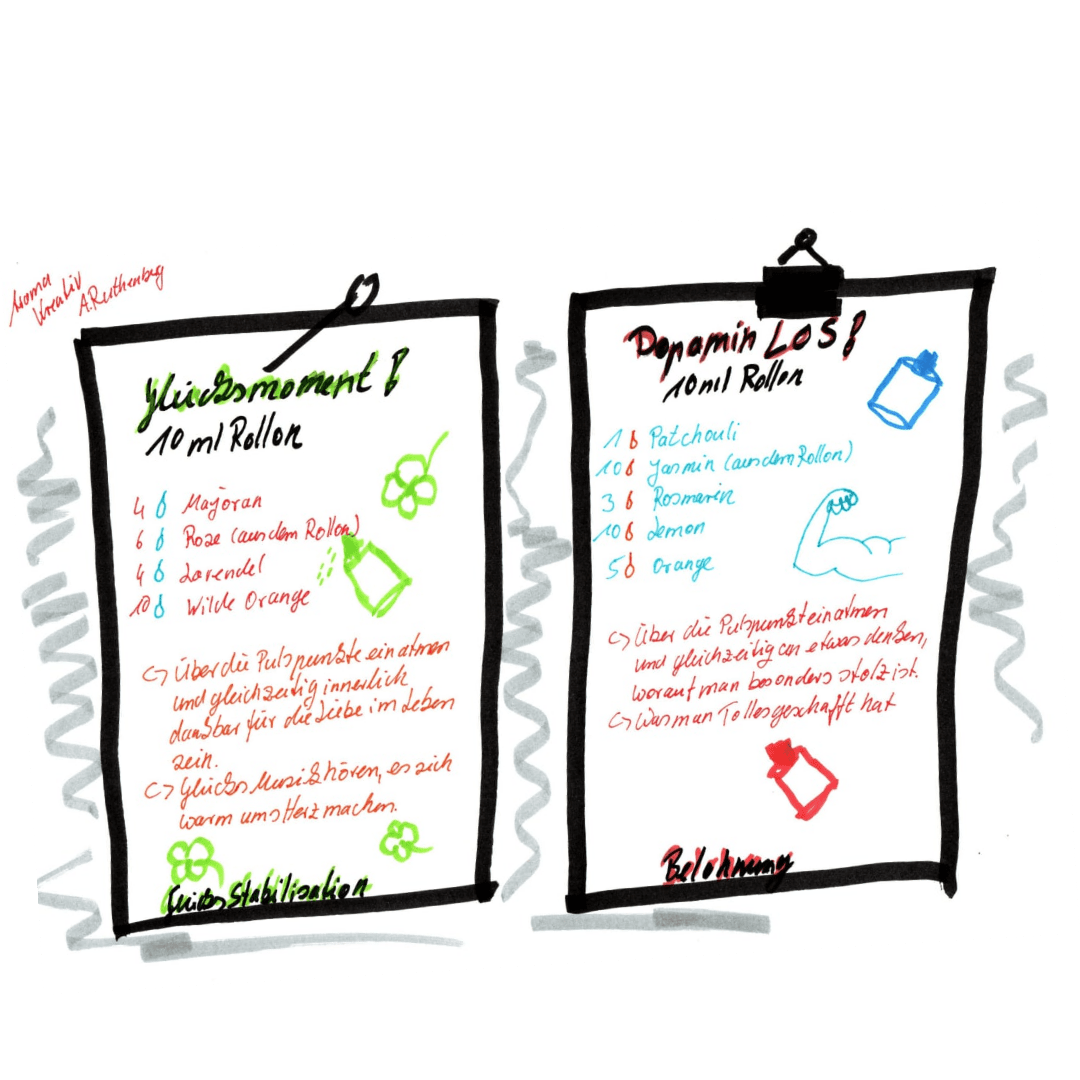 Aroma
Kreativ
A.Ruthenberg
Glücksmoment!
10 ml Rollon
4 Majoran
6 Rose (aus dem Rollon)
4 Lavendel
10 Wilde Orange
Über die Pulspunkte einatmen
und gleichzeitig innerlich
dankbar für die Liebe im Leben
sein.
Glücks Musik hören, es sich
warm ums Herz machen.
Glücks Stabilisation
Dopamin LOS!
10 ml Rollon
1 Patchouli
10 Jasmin (aus dem Rollon)
3 Rosmarin
10 Lemon
5 Orange
Über die Pulspunkte einatmen
und gleichzeitig an etwas denken,
worauf man besonders stolz ist.
Was man Tolles geschafft hat
Belohnung